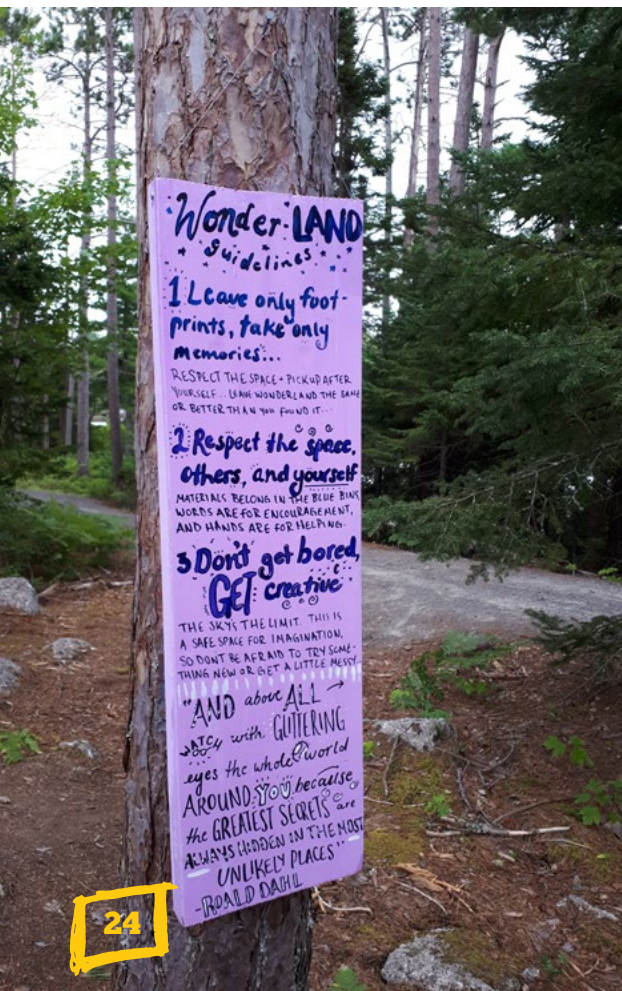 Wonder LAND
guidelines
1 Leave only foot-
prints, take only
memories...
RESPECT THE SPACE + PICK UP AFTER
YOURSELF... LEAVE WONDERLAND THE SAME
OR BETTER THAN YOU FOUND IT...
2 Respect the space,
others, and yourself
MATERIALS BELONG IN THE BLUE BINS,
WORDS ARE FOR ENCOURAGEMENT,
AND HANDS ARE FOR HELPING.
3 Don't get bored,
GET creative
THE SKY'S THE LIMIT. THIS IS
A SAFE SPACE FOR IMAGINATION,
SO DON'T BE AFRAID TO TRY SOME-
THING NEW OR GET A LITTLE MESSY
"AND above ALL
WATCH with GLITTERING
eyes the whole world
AROUND YOU because
the GREATEST SECRETS are
ALWAYS HIDDEN IN THE MOST
UNLIKELY PLACES"
-ROALD DAHL
24